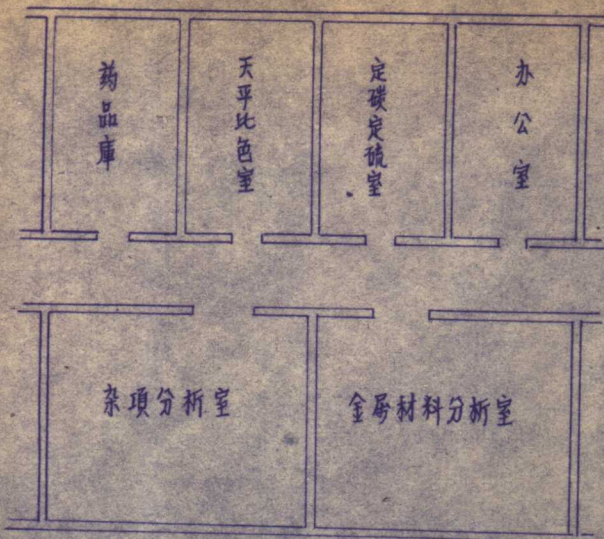 药品庫
天平比色室
定碳定硫室
办公室
杂項分析室
金属材料分析室